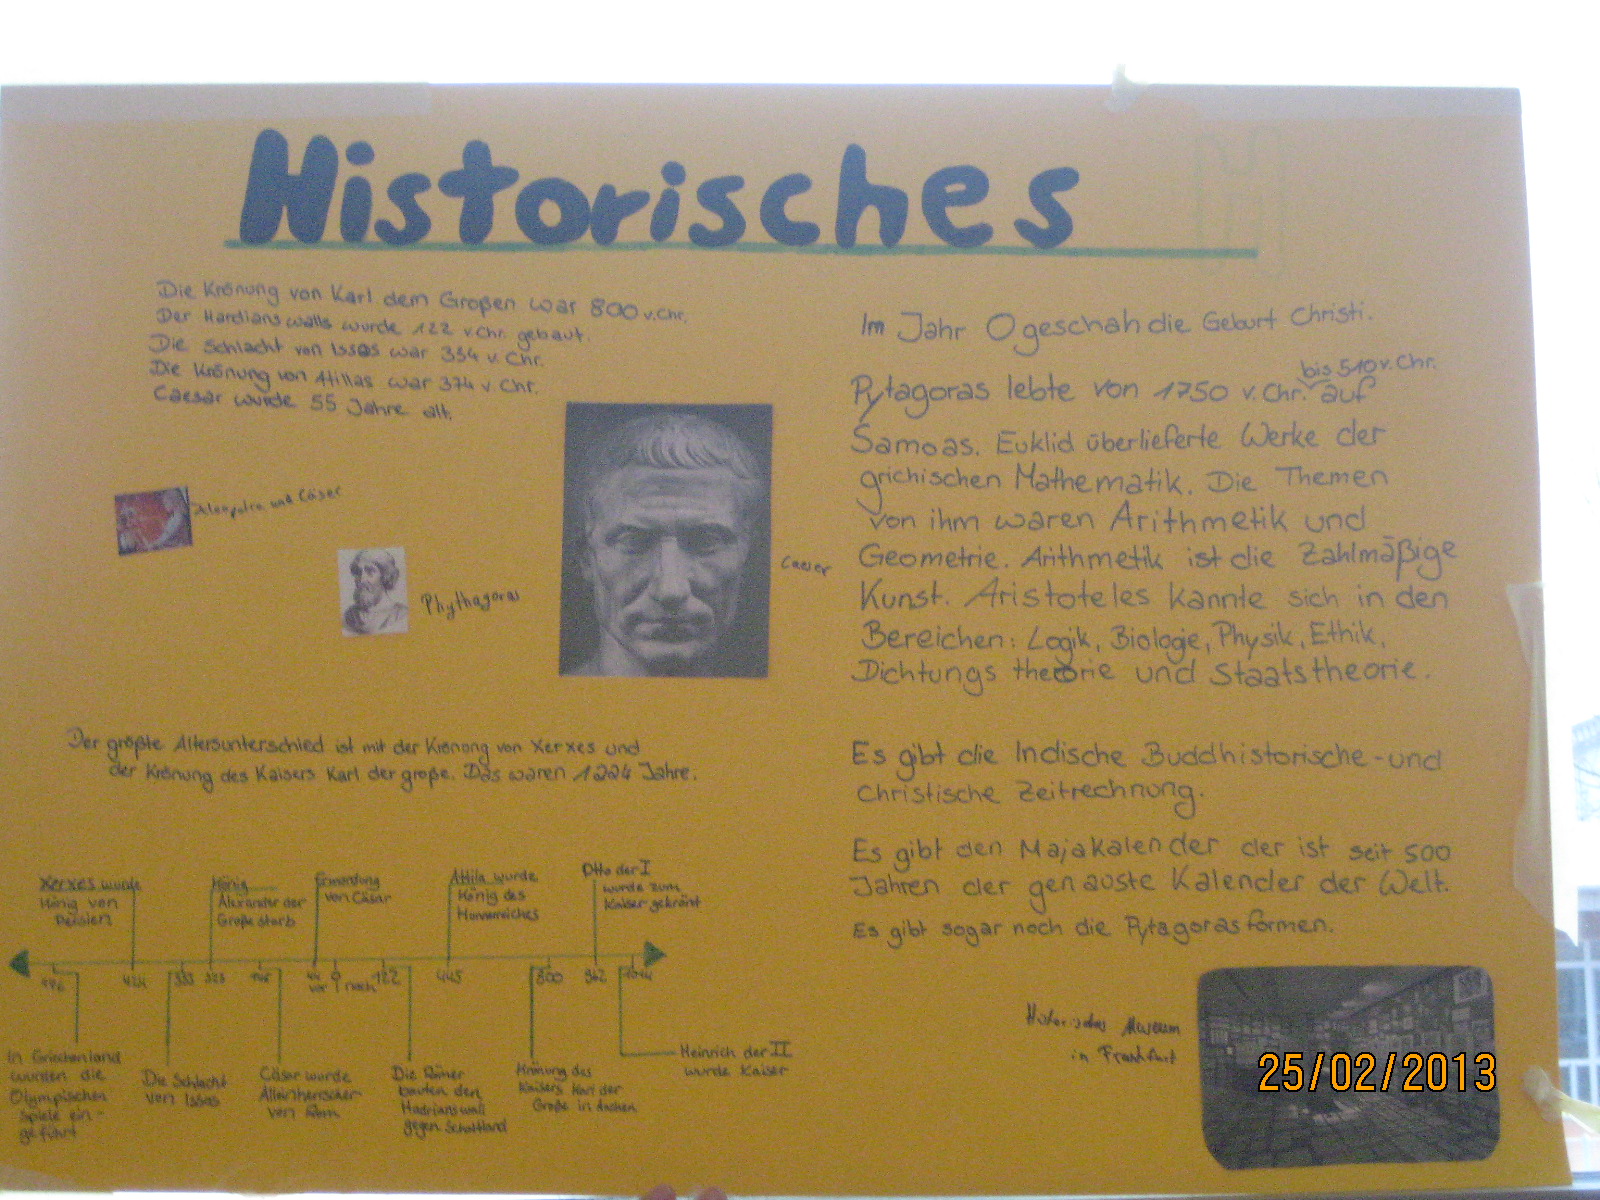 Historisches
Die Krönung von Karl dem Großen war 800 v.Chr.
Der Hardianswalls wurde 122 v.Chr. gebaut.
Die Schlacht von Issos war 334 v. Chr.
Die Krönung von Atillas war 374 v. Chr.
Caesar wurde 55 Jahre alt.
Kleopatra und Cäser
Phythagoras
Caeser
Im Jahr 0 geschah die Geburt Christi.
bis 510 v. Chr.
Pytagoras lebte von 1750 v. Chr. auf
Samoas. Euklid überlieferte Werke der
grichischen Mathematik. Die Themen
von ihm waren Arithmetik und
Geometrie. Arithmetik ist die Zahlmäßige
Kunst. Aristoteles kannte sich in den
Bereichen: Logik, Biologie, Physik, Ethik,
Dichtungs theorie und Staatstheorie.
Der größte Altersunterschied ist mit der Krönong von Xerxes und
der Krönung des Kaisers Karl der große. Das waren 1224 Jahre.
Es gibt die Indische Buddhistorische-und
Christische Zeitrechnung.
Es gibt den Majakalender der ist seit 500
Jahren der genauste Kalender der Welt.
Es gibt sogar noch die Pytagorasformen.
Xerxes wurde
König von
Persien
König
Alexander der
Große starb
Ermordung
von Cäsar
Attila wurde
König des
Hunnenreiches
Otto der I
wurde zum
Kaiser gekrönt
776 424 333 323 44 0 122 445 800 962
vor nach
In Griechenland
wurden die
Olympischen
Spiele ein-
geführt
Die Schlacht
von Issos
Cäsar wurde
Alleinherrscher
von Rom
Die Römer
bauten den
Hadrianswall
gegen Schottland
Krönung des
Kaisers Karl der
Große in Aachen
Heinrich der II
wurde Kaiser
Historisches Museum
in Frankfurt
25/02/2013